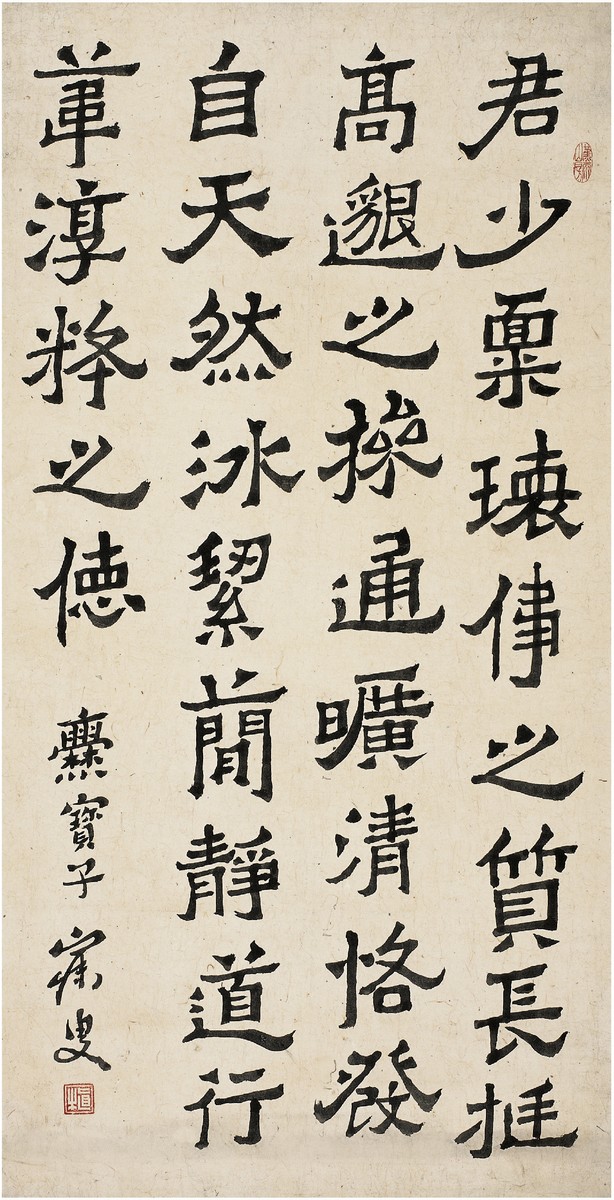 君少稟瓌偉之質長挺
高邈之操通曠清恪發
自天然冰絜蕳靜道行
葦淳粹之德
爨寶子 寐叟